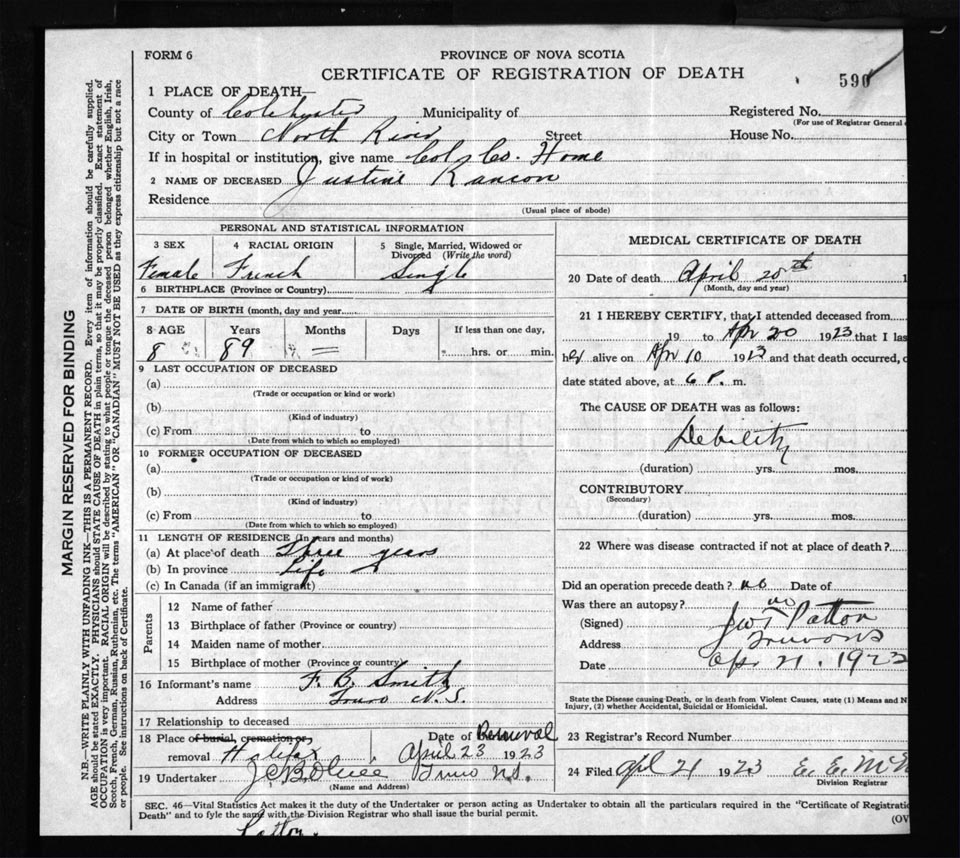 FORM 6
PROVINCE OF NOVA SCOTIA
CERTIFICATE OF REGISTRATION OF DEATH
590
1 PLACE OF DEATH—
County of Colchester Municipality of
Registered No.
(For use of Registrar General
City or Town North River Street House No.
If in hospital or institution, give name Col Co. Home
2 NAME OF DECEASED Justine
Residence
(Usual place of abode)
PERSONAL AND STATISTICAL INFORMATION
3 SEX 4 RACIAL ORIGIN 5 Single, Married, Widowed or Divorced (Write the word)
Female French Single
6 BIRTHPLACE (Province or Country)
7 DATE OF BIRTH (month, day and year)
8 AGE Years Months Days If less than one day,
8 89 = hrs. or min.
9 LAST OCCUPATION OF DECEASED
(a)
(Trade or occupation or kind or work)
(b)
(Kind of industry)
(c) From to
(Date from which to which so employed)
10 FORMER OCCUPATION OF DECEASED
(a)
(Trade or occupation or kind of work)
(b)
(Kind of industry)
(c) From to
(Date from which to which so employed)
11 LENGTH OF RESIDENCE (In years and months)
(a) At place of death Three years
(b) In province Life
(c) In Canada (if an immigrant)
Parents
12 Name of father
13 Birthplace of father (Province or country)
14 Maiden name of mother
15 Birthplace of mother (Province or country)
16 Informant's name F. B. Smith
Address Truro N.S.
17 Relationship to deceased
18 Place of burial, cremation or, removal Halifax Date of Removal April 23 1923
19 Undertaker Truro N.S.
(Name and Address)
MEDICAL CERTIFICATE OF DEATH
20 Date of death April 20th 1
(Month, day and year)
21 I HEREBY CERTIFY, that I attended deceased from
19 to Apr 20 1923 that I las
her alive on Apr 10 1923 and that death occurred, o
date stated above, at 6 P. m.
The CAUSE OF DEATH was as follows:
Debility
(duration) yrs. mos.
CONTRIBUTORY
(Secondary)
(duration) yrs. mos.
22 Where was disease contracted if not at place of death?
Did an operation precede death? no Date of
Was there an autopsy? no
(Signed) Patton
Address Truro NS
Date Apr 21. 1923
State the Disease causing Death, or in death from Violent Causes, state (1) Means and N
Injury, (2) whether Accidental, Suicidal or Homicidal.
23 Registrar's Record Number
24 Filed Apl 21 1923 E. E. McN
Division Registrar
SEC. 46—Vital Statistics Act makes it the duty of the Undertaker or person acting as Undertaker to obtain all the particulars required in the "Certificate of Registratio
Death" and to fyle the same with the Division Registrar who shall issue the burial permit.
(OV
Patton.
MARGIN RESERVED FOR BINDING
N.B.—WRITE PLAINLY WITH UNFADING INK—THIS IS A PERMANENT RECORD. Every item of information should be carefully supplied.
AGE should be stated EXACTLY. PHYSICIANS should STATE CAUSE OF DEATH in plain terms, so that it may be properly classified. Exact statement of
OCCUPATION is very important. RACIAL ORIGIN will be described by stating to what people or tongue the deceased person belonged whether English, Irish,
Scotch, French, German, Russian, Ruthenian, etc. The terms "AMERICAN" OR "CANADIAN" MUST NOT BE USED as they express citizenship but not a race
or people. See instructions on back of Certificate.